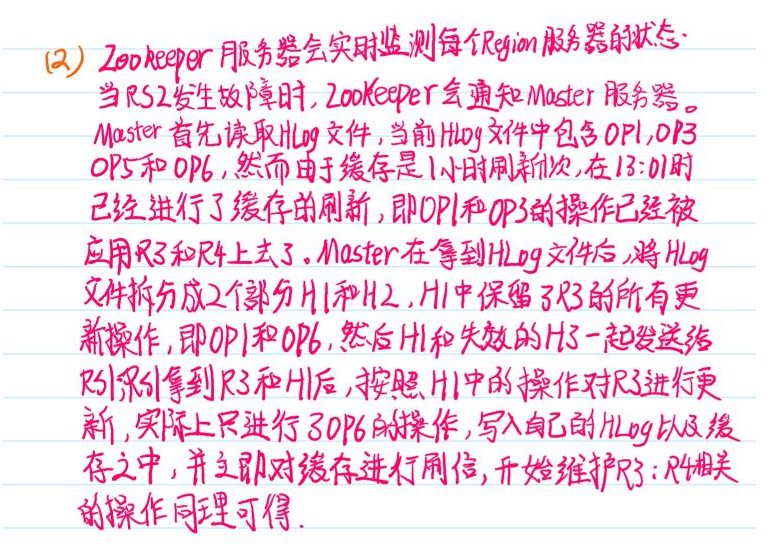 (2) Zookeeper 服务器会实时监测每个Region服务器的状态.
当RS2发生故障时,ZooKeeper会通知Master服务器。
Master首先读取HLog文件,当前HLog文件中包含OP1,OP3
OP5和OP6,然而由于缓存是1小时刷新1次,在13:01时
已经进行了缓存的刷新,即OP1和OP3的操作已经被
应用R3和R4上去了。Master在拿到HLog文件后,将HLog
文件拆分成2个部分H1和H2,H1中保留了R3的所有更
新操作,即OP1和OP6,然后H1和失效的H3一起发送给
RS1,RS1拿到R3和H1后,按照H1中的操作对R3进行更
新,实际上只进行了OP6的操作,写入自己的HLog以及缓
存之中,并立即对缓存进行刷信,开始维护R3;R4相关
的操作同理可得.